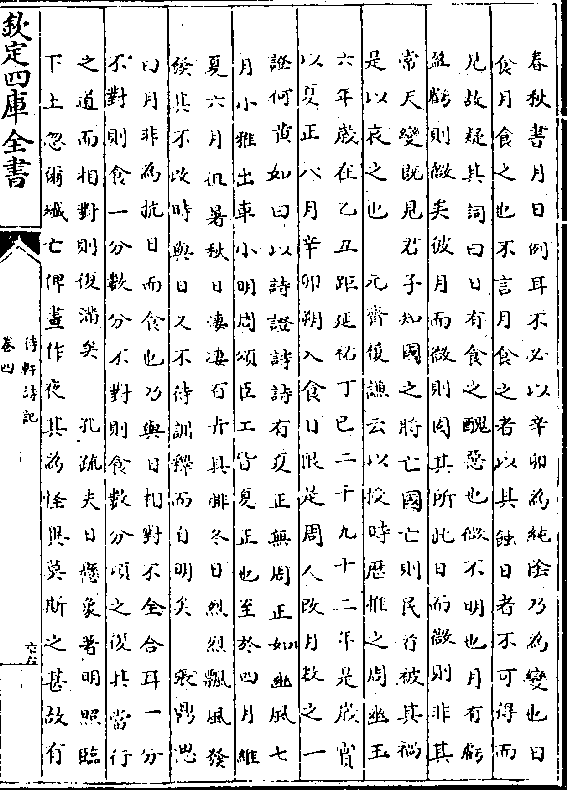 春秋書月日例耳不必以辛卯為純陰乃為變也日
食月食之也不言月食之者以其蝕日者不可得而
見故疑其詞曰日有食之醜惡也微不明也月有虧
盈虧則微矣彼月而微則固其所此日而微則非其
常天變既見君子知國之將亡國亡則民苦被其禍
是以哀之也　元齊復謙云以授時歷推之周幽王
六年歲在乙丑距延祐丁巳二千九十二年是歲實
以夏正八月辛卯朔入食日限是周人改月數之一
證何黄如曰以詩證詩詩有夏正無周正如豳風七
月小雅出車小明周頌臣工皆夏正也至於四月維
夏六月徂暑秋日凄凄百卉具腓冬日烈烈飄風發
發其不改時與月又不待訓釋而自明矣　張鼎思
曰月非為抗日而食也乃與日相對不全合耳一分
不對則食一分數分不對則食數分頃之復其當行
之道而相對則復滿矣　孔疏夫日懸象著明照臨
下土忽爾殲亡俾晝作夜其為怪異莫斯之甚故有
欽定四庫全書
待軒詩記
卷四